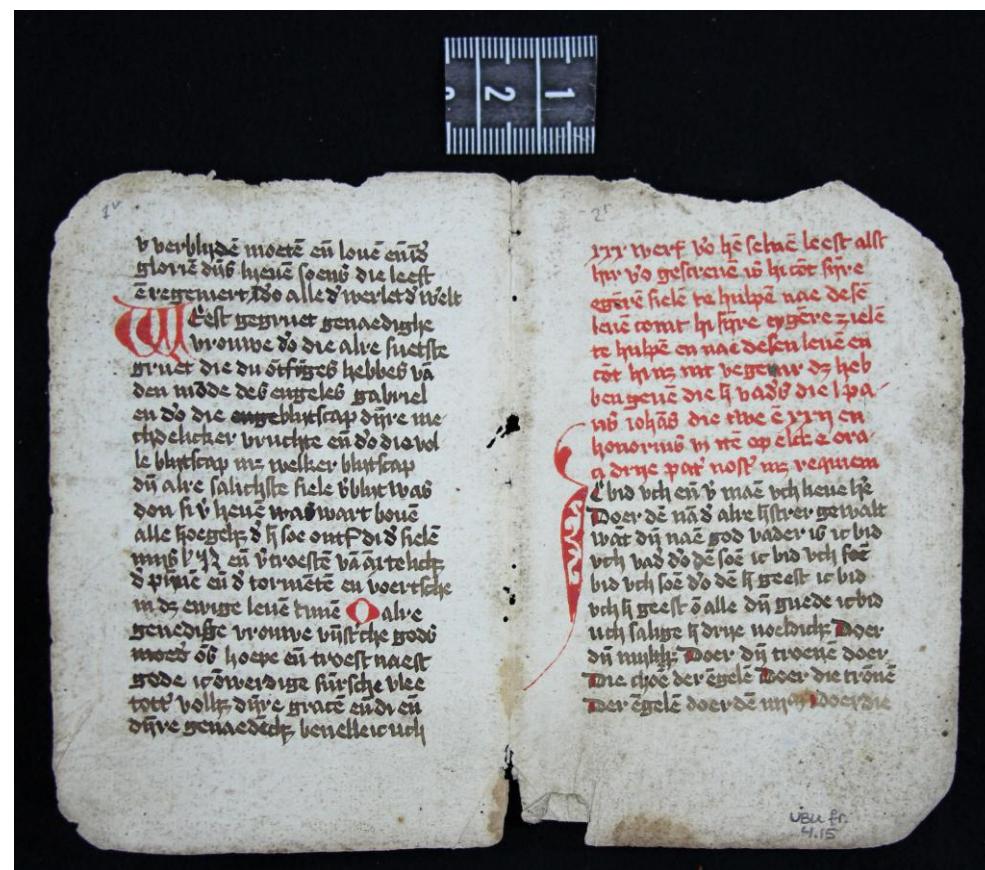 2
1
1v
v verblijdē moetē eñ louē
gloriē dijs lieuē soens die leest
ē regeniert do alle d' werlet d' welt
West gegruet genaedighe
vrouwe do die alre suetste
gruet die du ōtfīges hebbes vā
den mōde des engeles gabriel
en do die blijtscap dijre me
chdelicker vruchte eñ do die vol
le blijtscap mz welker blijtscap
dijn alre salichste siele v'blijt was
don si v lieuē was wart bouē
alle hoegetz soe ontf siele
eñ v'troestē vā
d' pijnē eñ d' tormētē en voertsche
in dz ewige leuē Amē O alre
genedige vrouwe gods
moed' ōs hoepe eñ troest naest
gode ic ōwerdige sūrsche vlee
tott' dijre gracē
dijre genaedech beuelle ic uch
2r
xxx werf vo hē seluē leest alst
hijr vo gescreuē is hi cōt sijre
egērē sielē te hulpē nae desē
leuē comt hi sijre eygēre zielē
te hulpē en nae desen leuē en
cōt hi nz int vegeuir dz heb
ben geuē die h vad's die l pa
ns iohās die twe ē xxij en
honorius vi op elck e ora
cj drije pat' nost' mz requiem
Ic bid vch eñ v maē vch lieue h're
Doer dē nā d' alre gewalt
wāt dijn naē god vader is ic bid
vch vad' do dē soē ic bid vch soē
bid vch soē do dē h geest ic bid
vch h geest ō alle dijn guede ic bid
uch salige h drije Doer
dijn Doer dijn troenē doer
Die choē der ēgelē Doer die trōnē
Der ēgelē doer dē Doer die
UBU fr.
4.15